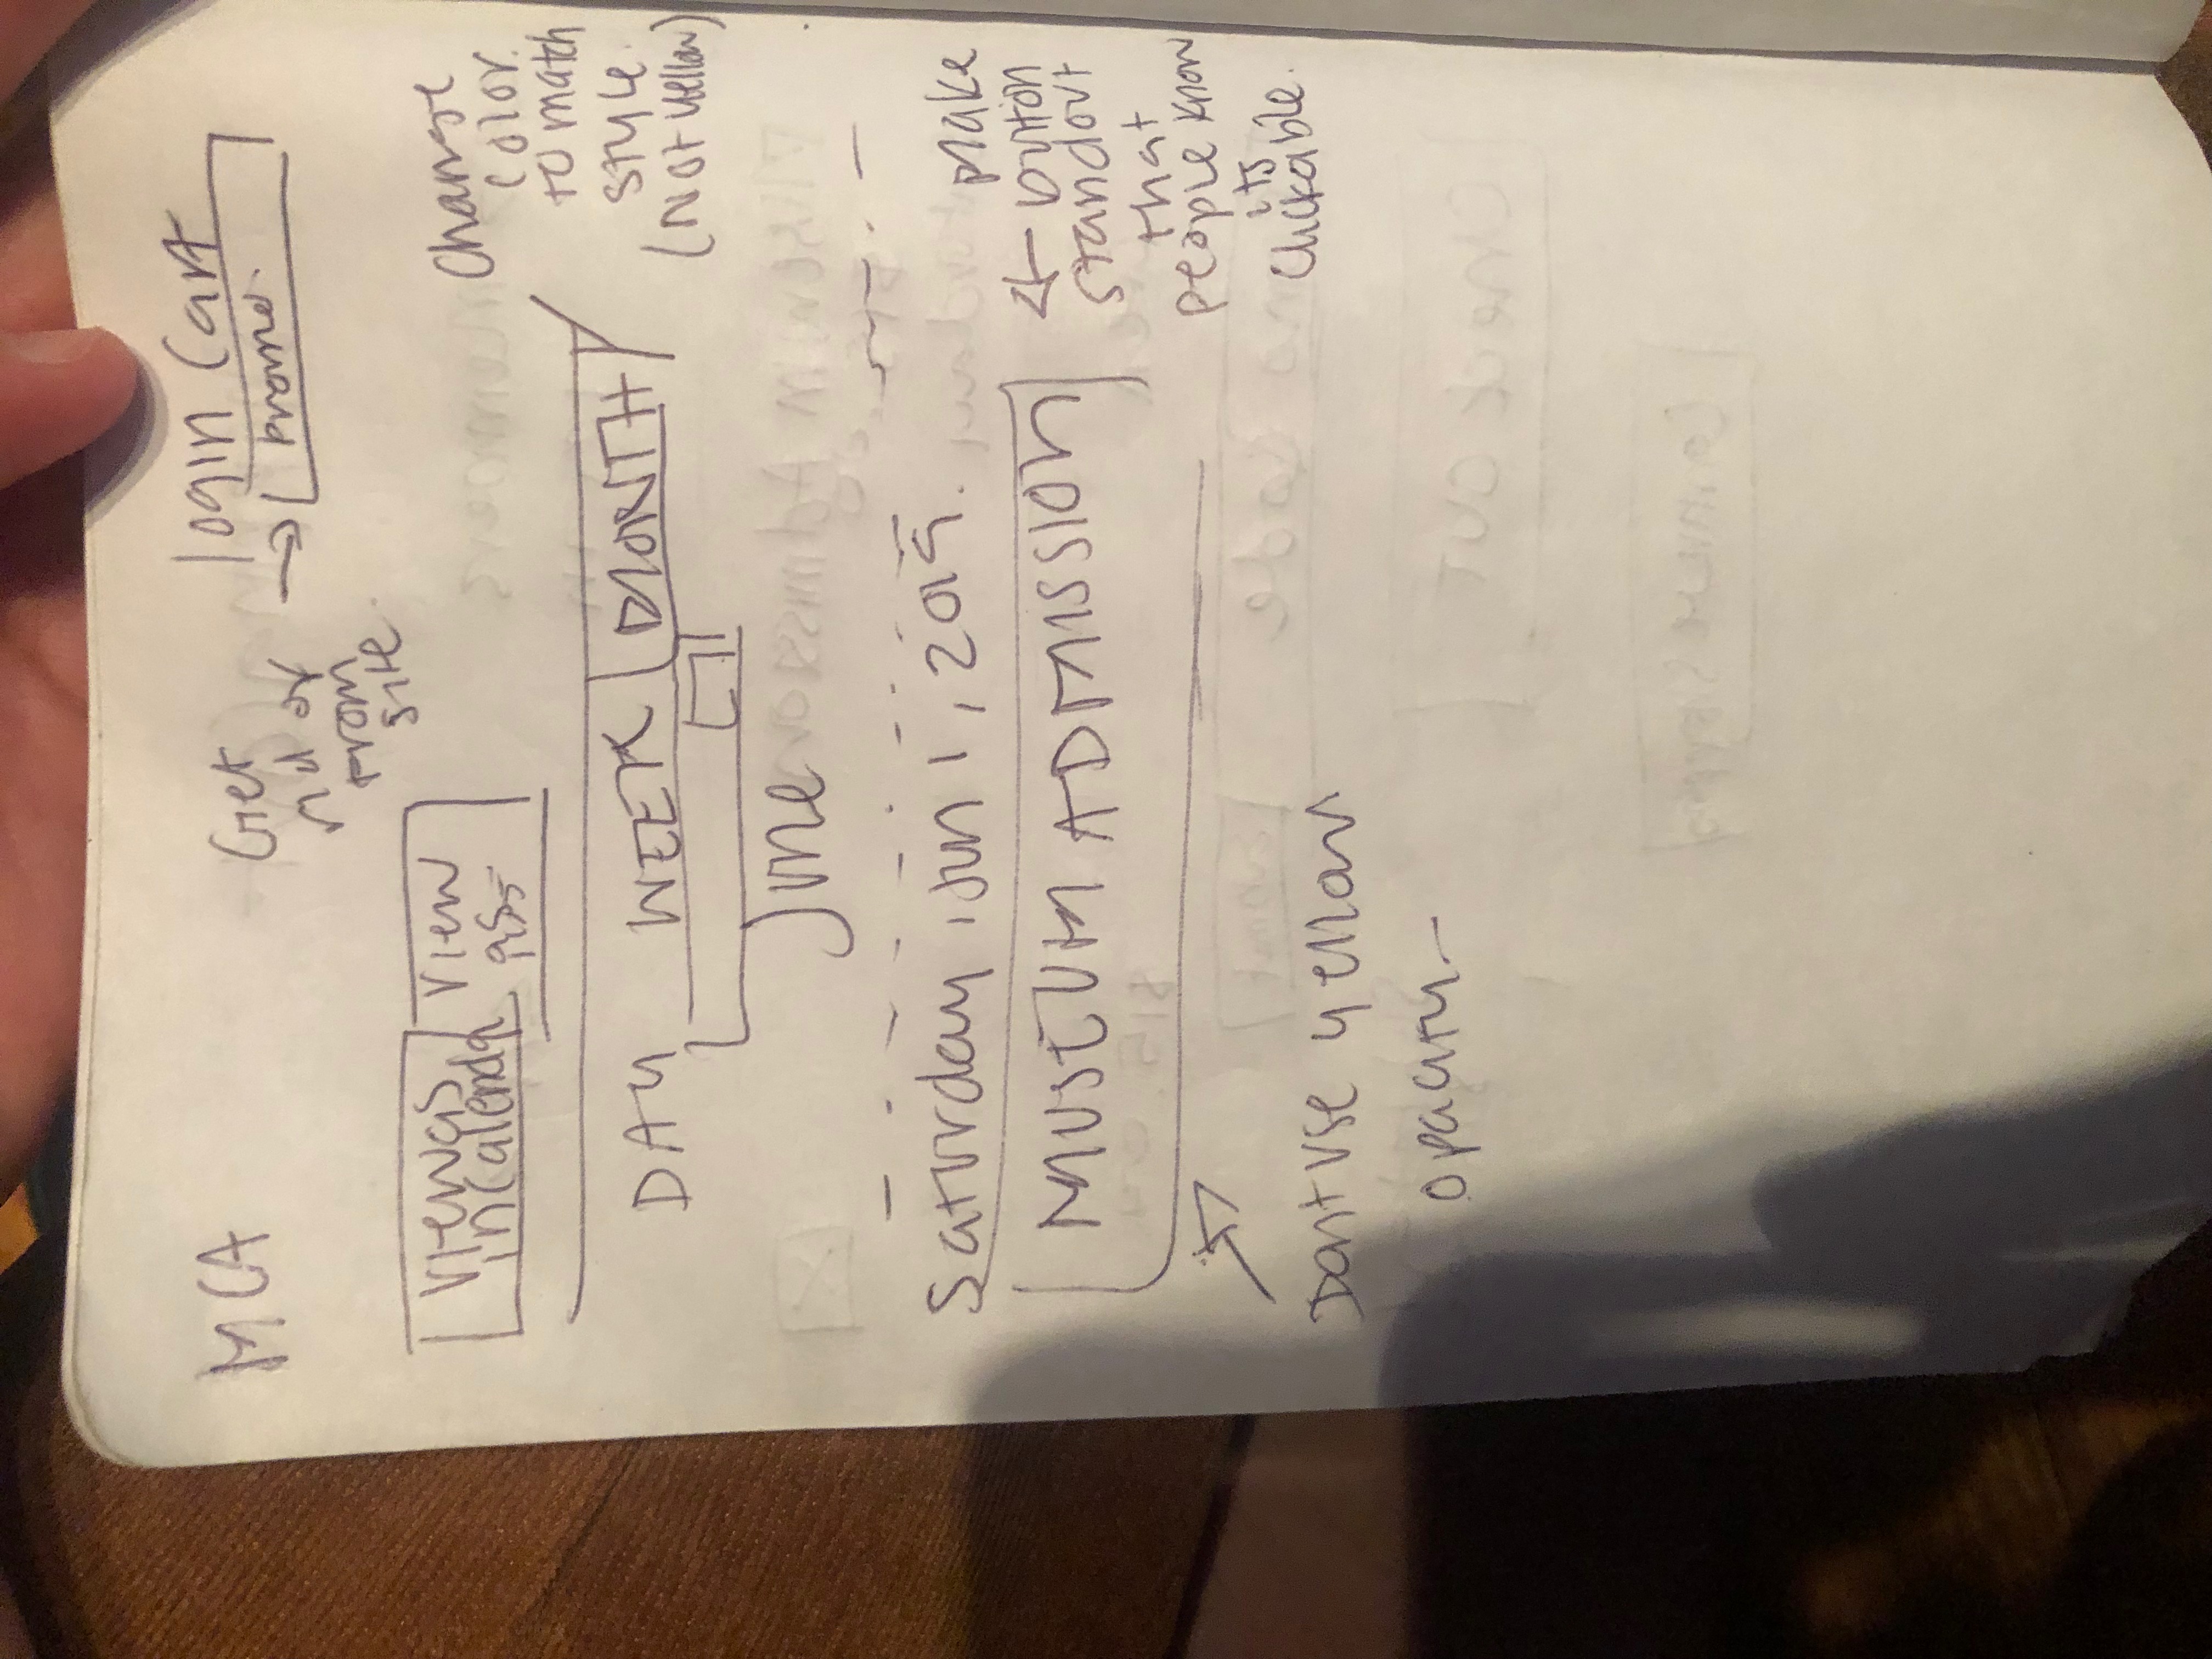 MCA
login Cart
promo.
Get
rid of
from
site.
view as
in Calendar
view
as
Change
color.
to match
style.
(Not yellow)
DAY WEEK MONTH
June
Saturday, Jun 1, 2019.
MUSEUM ADMISSION
Make
button
standout
that
people know
its
clickable.
Dont use yellow
opacity